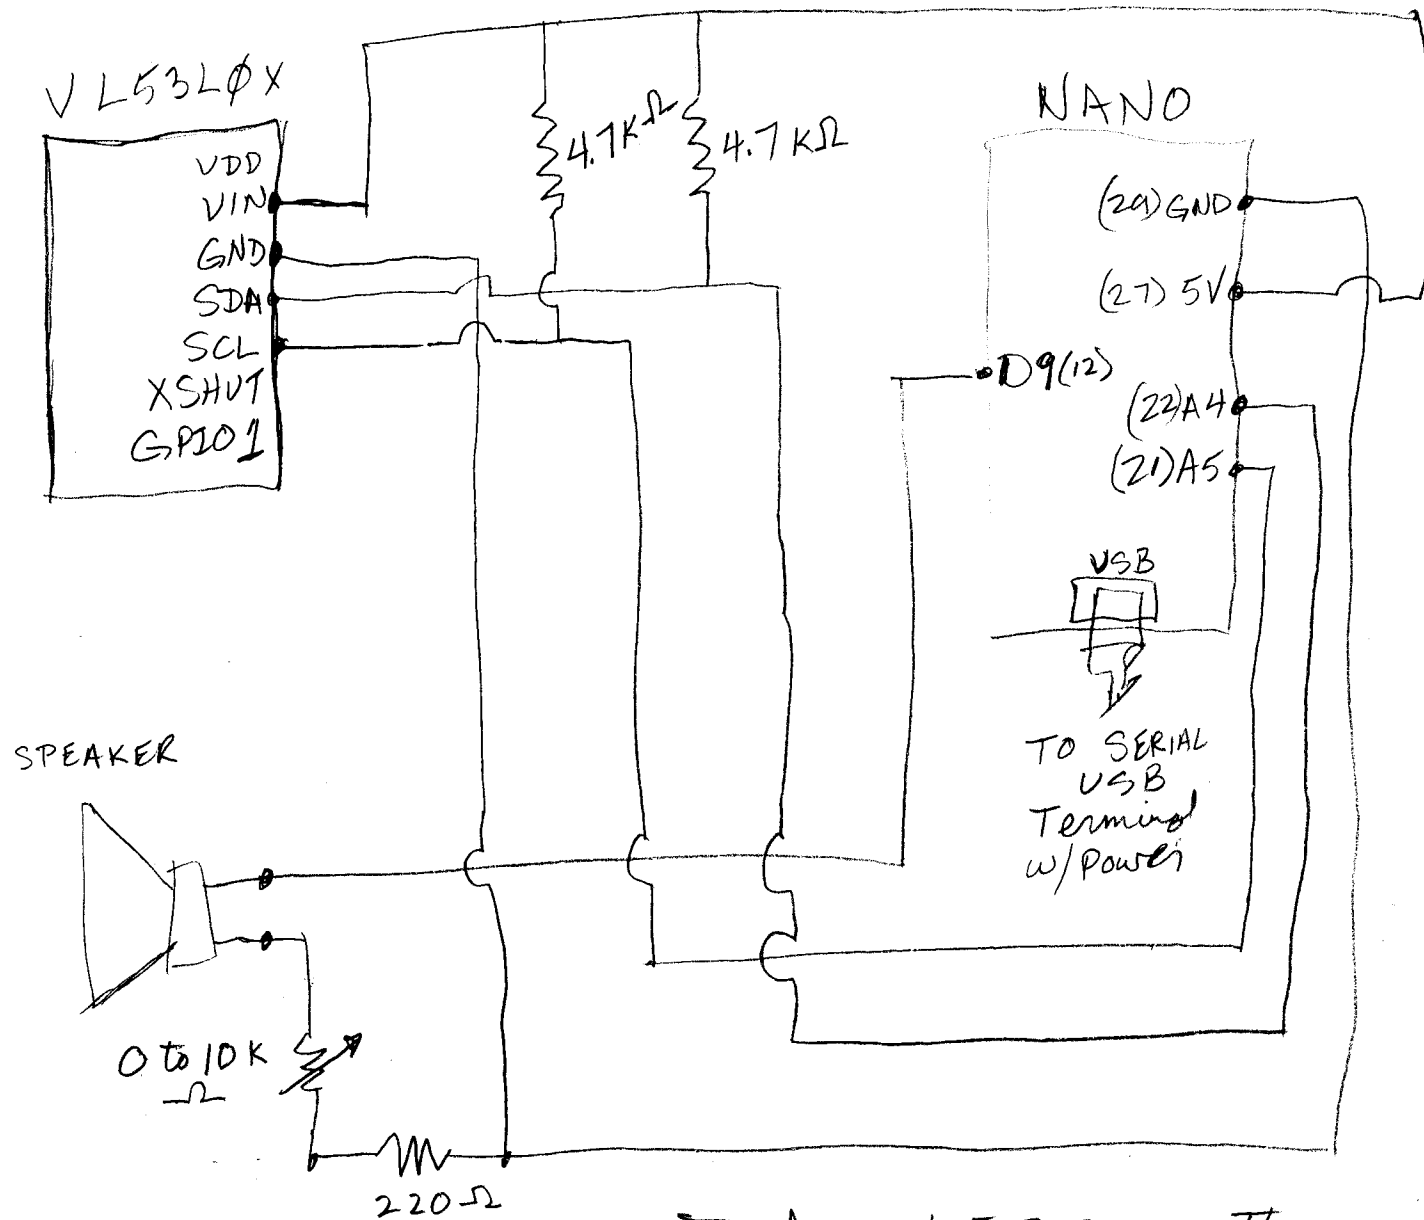 VL53LØX
VDD
VIN
GND
SDA
SCL
XSHUT
GPIO1
4.7KΩ
4.7KΩ
NANO
(29)GND
(27) 5V
D9(12)
(22)A4
(21)A5
USB
TO SERIAL
USB
Terminal
w/Power
SPEAKER
0 to 10K
Ω
220Ω